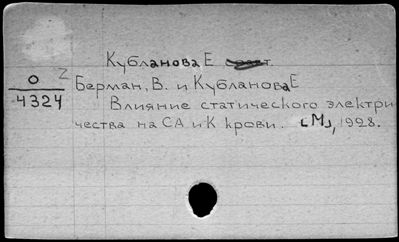 Кубланова Е
О
4324
Z
Берман, В. и Кубланова Е
Влияние статического электри
чества на СА и К крови. [М], 1928.